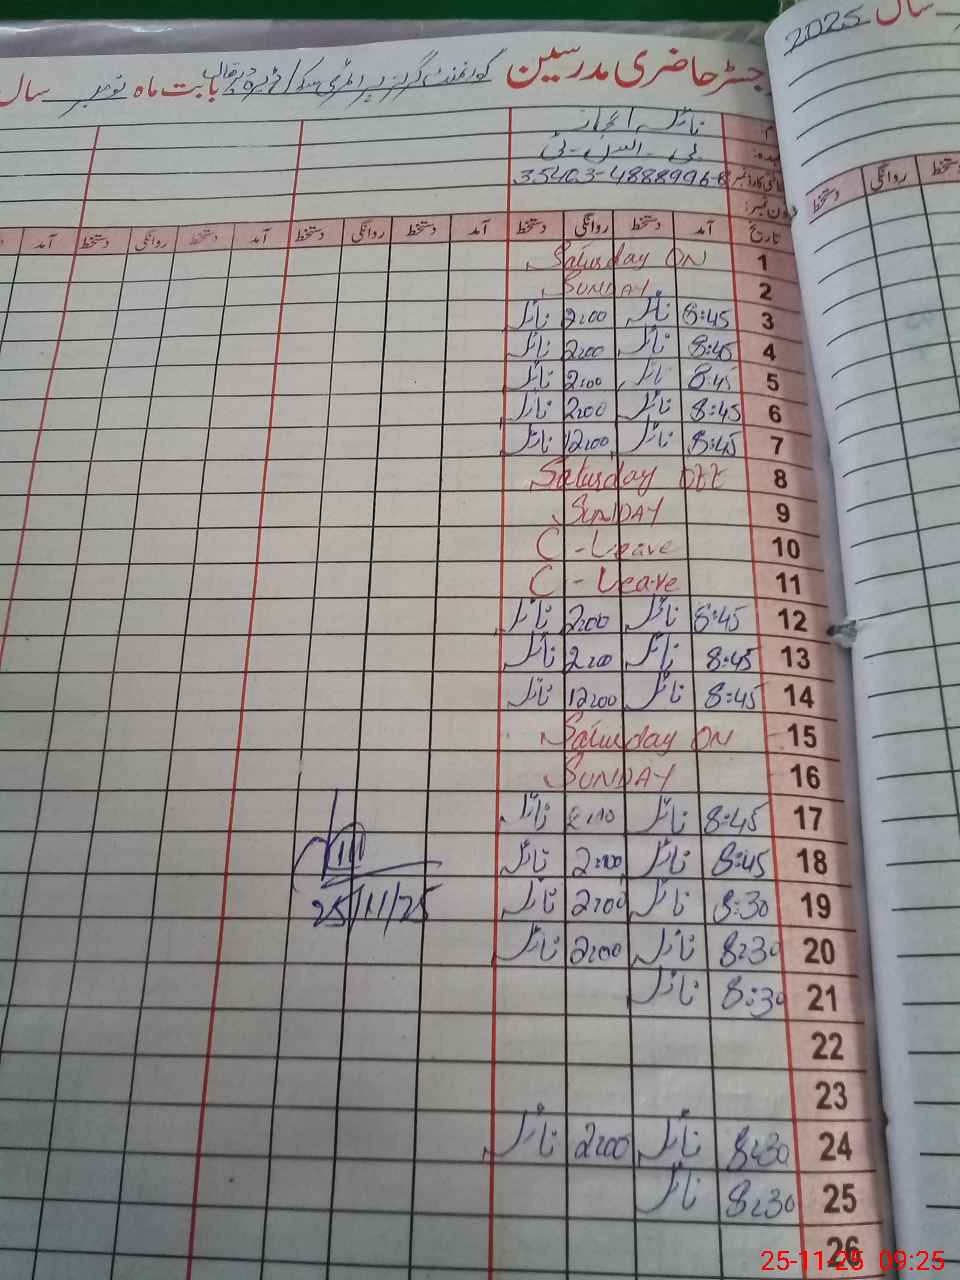 سال 2025
رجسٹر حاضری مدرسین گورنمنٹ گرلز بابت ماہ نومبر سال
نائلہ اعجاز
پی-ایس-ٹی
35403-4888996-8
فون نمبر:
تاریخ آمد دستخط روانگی دستخط آمد دستخط روانگی دستخط آمد دستخط روانگی دستخط آمد
روانگی دستخط
1 Saturday ON
2 SUNDAY
3 8:45 نائلہ 2:00 نائلہ
4 8:45 نائلہ 2:00 نائلہ
5 8:45 نائلہ 2:00 نائلہ
6 8:45 نائلہ 2:00 نائلہ
7 8:45 نائلہ 12:00 نائلہ
8 Saturday OFF
9 SUNDAY
10 C-Leave
11 C-Leave
12 8:45 نائلہ 2:00 نائلہ
13 8:45 نائلہ 2:00 نائلہ
14 8:45 نائلہ 12:00 نائلہ
15 Saturday ON
16 SUNDAY
17 8:45 نائلہ 2:00 نائلہ
18 8:45 نائلہ 2:00 نائلہ
19 8:30 نائلہ 2:00 نائلہ
25/11/25
20 8:30 نائلہ 2:00 نائلہ
21 8:30 نائلہ
22
23
24 8:30 نائلہ 2:00 نائلہ
25 8:30 نائلہ
26
25-11-25 09:25